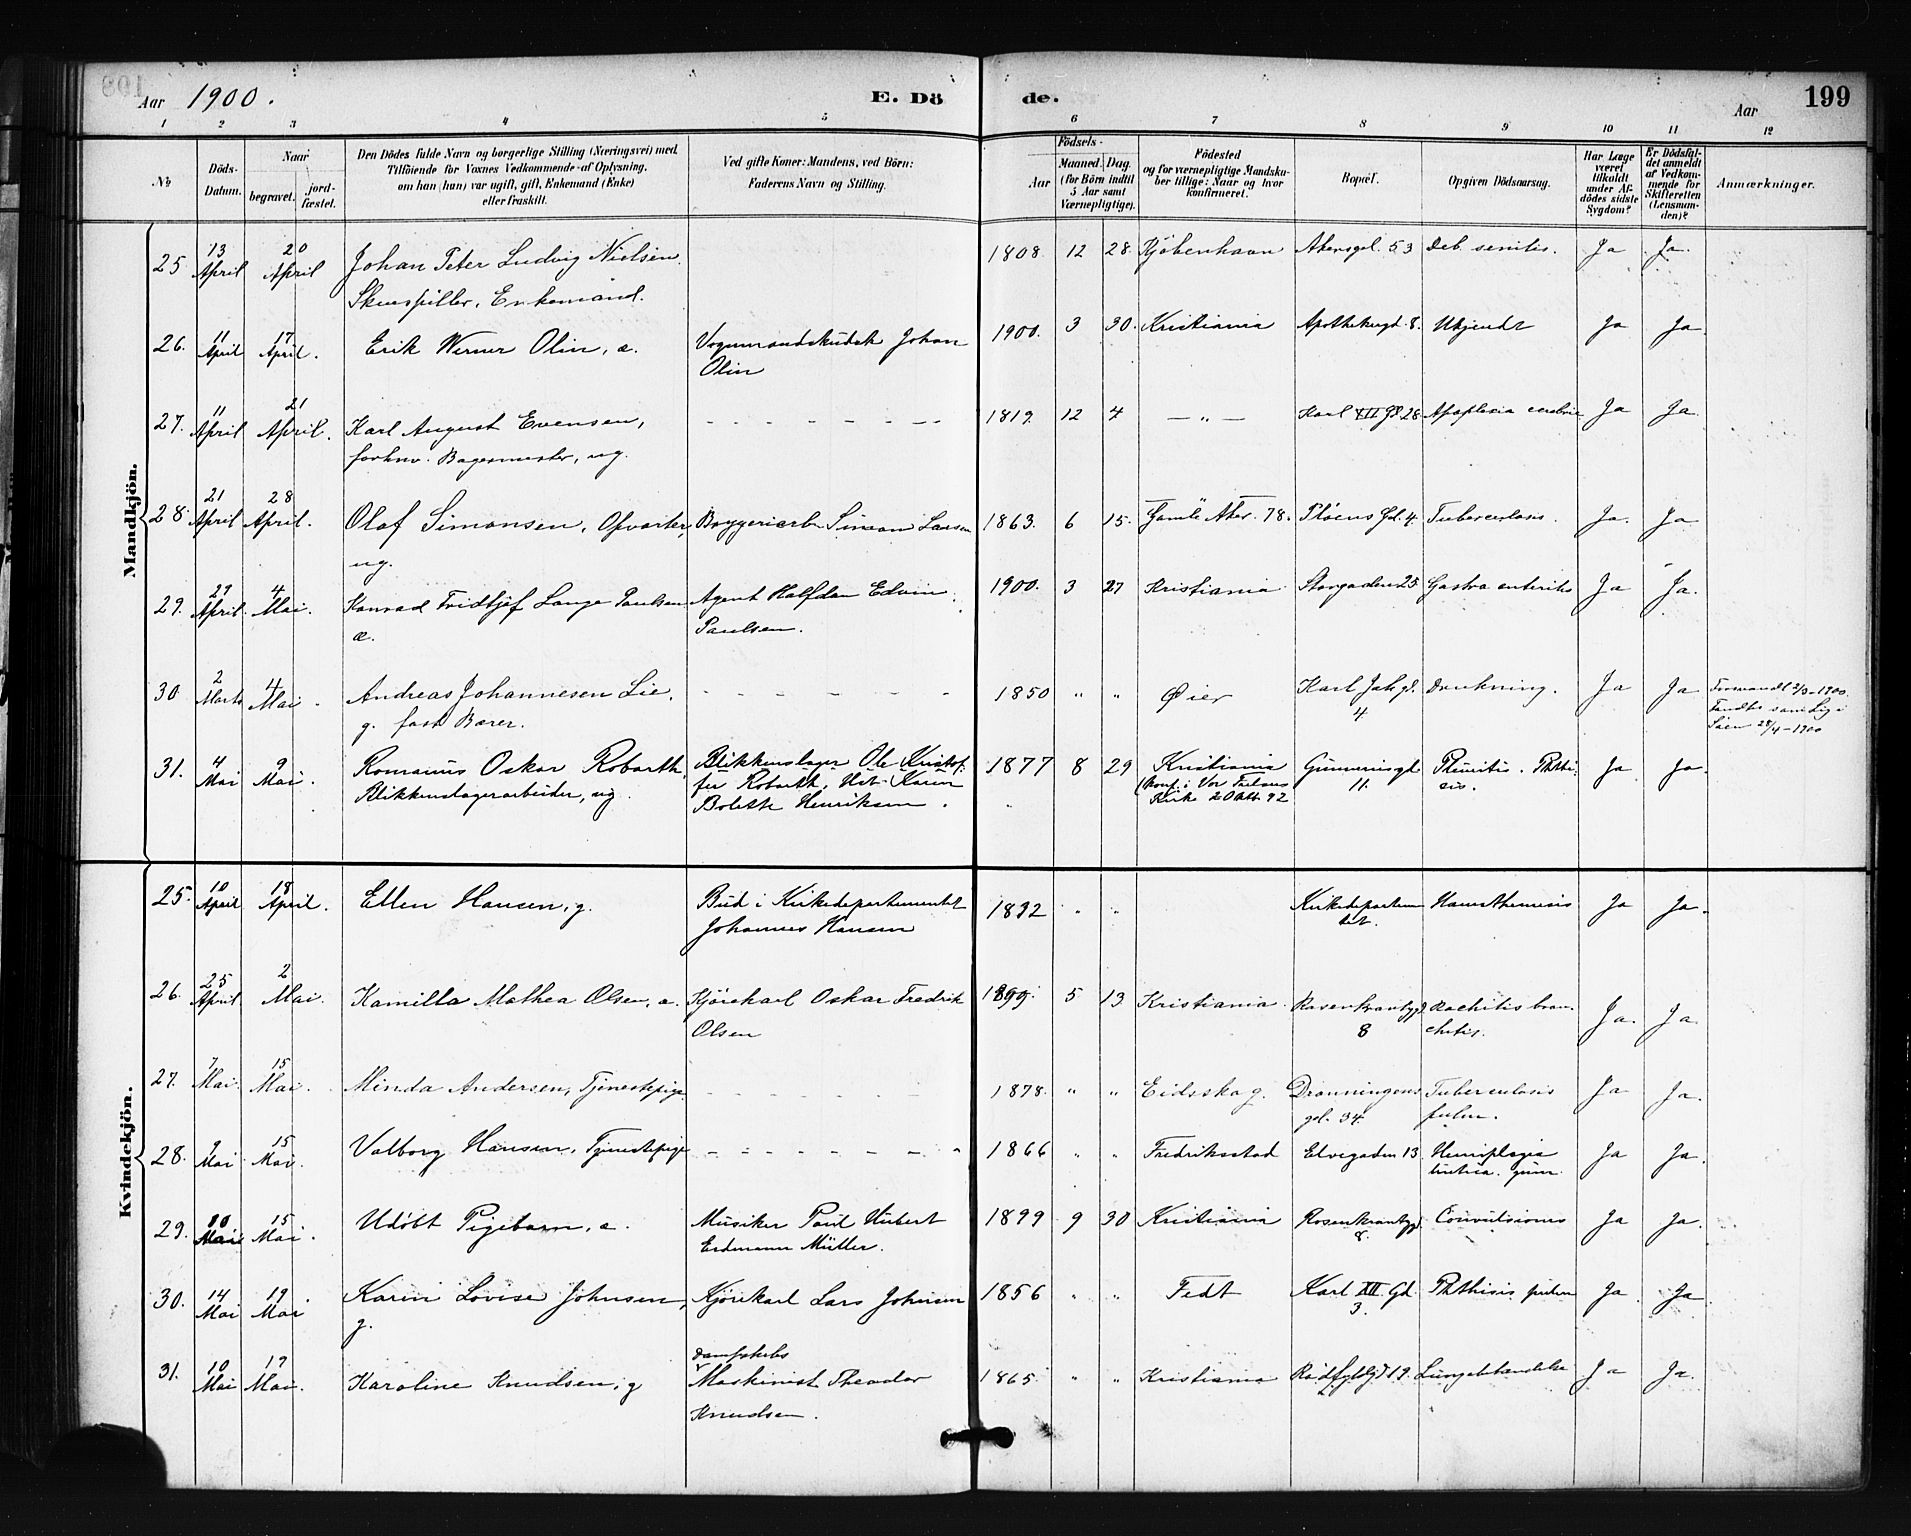 Aar 1900. E. Dö de. Aar 199
1 2 3 4 5 6 7 8 9 10 11 12
No
Döds-Datum.
Naar
begravet. jord-fæstet.
Den Dödes fulde Navn og borgerlige Stilling (Næringsvei) med
Tilföiende for Voxnes Vedkommende af Oplysning,
om han (hun) var ugift, gift, Enkemand (Enke)
eller fraskilt.
Ved gifte Koner: Mandens, ved Börn:
Faderens Navn og Stilling.
Födsels-
Aar Maaned. Dag.
(for Börn indtil
5 Aar samt
Værnepligtige).
Födested
og for værnepligtige Mandsku-
ber tillige: Naar og hvor
konfirmeret.
Bopæl.
Opgiven Dödsaarsag.
Har Læge
været
tilkaldt
under Af-
dödes sidste
Sygdom?
Er Dödsfal-
det anmeldt
af Vedkom-
mende for
Skifteretten
(Lensman-
den)?
Anmærkninger.
Mandkjön.
25 13 April 20 April Johan Peter Ludvig Nielsen 1808 12 28 Kjøbenhavn Akersgd. 53 Deb. senilis. Ja Ja.
Skuespiller, Enkemand.
26. 11 April 17 April. Erik Werner Olin, æ. Vognmandskudsk Johan 1900. 3 30. Kristiania Apothekergd. 8. Ukjendt Ja Ja
Olin
27. 11 April 21 April. Karl August Evensen, 1819 12 4 — „ — Karl XII Gd 28 Apoplexia cerebri Ja Ja
forhnv. Bagermester, ug.
28 21 April 28 April. Olaf Simonsen, Opvarter, Bryggeriarb. Simon Larsen 1863. 6 15. Gamle Aker. 78. Pløens Gd. 4. Tuberculosis. Ja. Ja
ug.
29. 29 April 4 Mai. Konrad Fridtjof Lange Paulsen Agent Halfdan Edvin 1900. 3 27 Kristiania Storgaden 25 Gastro enteritis Ja Ja.
æ. Paulsen.
30 2 Marts 4 Mai. Andreas Johannesen Lie, 1850 „ „ Øier Karl Joh. gd. Drukning. Ja Ja Forsvandt 2/3-1900.
g. fast Bærer. 4 Fandtes som Lig i
Søen 28/4-1900
31. 4 Mai 9 Mai. Romanus Oskar Robarth Blikkenslager Ole Kristof- 1877 8 29 Kristiania Grünneriegd Pleuritis. Phthi- Ja Ja
Blikkenslagerarbeider, ug. fer Robarth, Het. Karen (Konf. i Vor Frelsers 11. sis.
Bolette Henriksen. Kirke 2 Okt. 92
Kvindekjön.
25. 10 April 18 April. Ellen Hansen, g. Bud i Kirkedepartementet 1832 „ „ Kirkedepartemen Hæmathemesis Ja Ja.
Johannes Hansen tet.
26. 25 April 2 Mai. Kamilla Mathea Olsen, æ. Kjørekarl Oskar Fredrik 1899. 5 13 Kristiania Rosenkrantzgd. Rachitis bron-
Olsen 8 chitis. Ja. Ja
27. 7 Mai. 15 Mai. Minda Andersen, Tjenestepige 1878. „ „ Eidsskog. Dronningens Tuberculosis Ja Ja.
gd. 34. pulm.
28. 9 Mai 15 Mai. Valborg Hansen, Tjenestepige 1866 „ „ Fredriksstad Elvegaden 13 Hemiplegia Ja Ja.
29. 10 Mai 15 Mai. Udöbt Pigebarn, æ. Musiker Paul Hubert 1899 9 30 Kristiania Rosenkrantzgd. Convulsiones Ja Ja.
Erdmann Müller. 8.
30. 14 Mai 19 Mai Karen Lovise Johnsen, Kjørekarl Lars Johnsen 1856 „ „ Fedt Karl XII Gd. Phthisis pulm Ja Ja
g. 3.
31. 10 Mai 19 Mai. Karoline Knudsen, g Dampskibs Maskinist Theodor 1865 „ „ Kristiania Raadfyldgd 19. Lungebetændelse Ja Ja.
Knudsen.